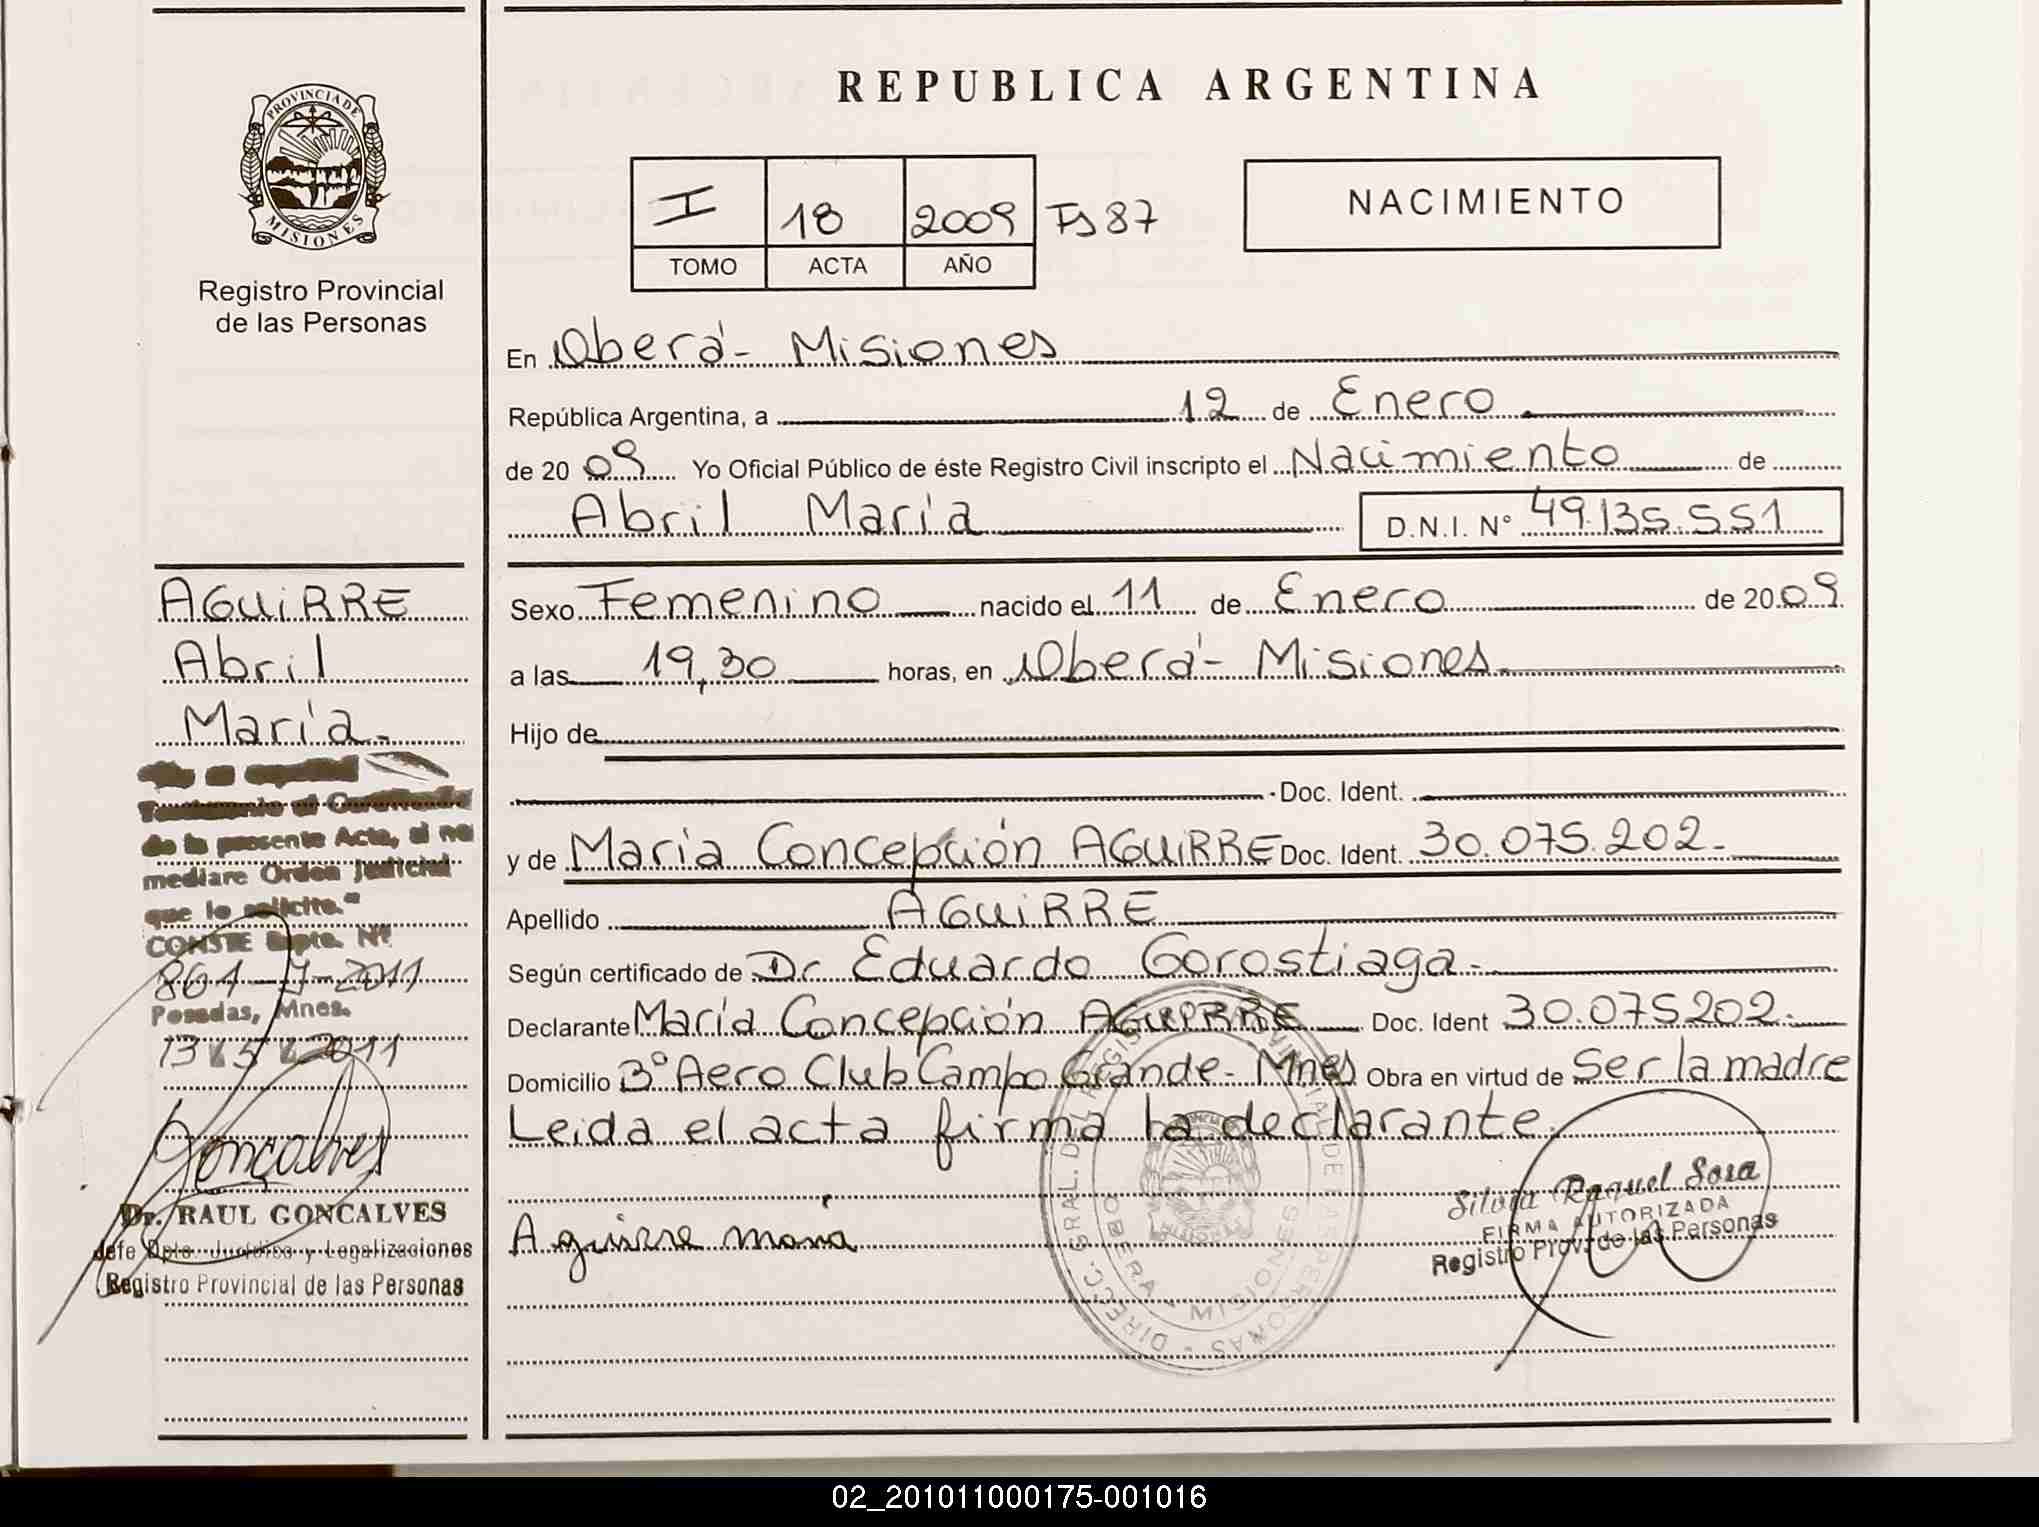 PROVINCIA DE
MISIONES
Registro Provincial
de las Personas
REPUBLICA ARGENTINA
I 18 2009 Fs 87
TOMO ACTA AÑO
NACIMIENTO
En Oberá - Misiones
República Argentina, a 12 de Enero
de 2009 Yo Oficial Público de éste Registro Civil inscripto el Nacimiento de
Abril María D.N.I. N° 49.135.551
Sexo Femenino nacido el 11 de Enero de 2009
a las 19,30 horas, en Oberá - Misiones.
Hijo de
- Doc. Ident.
y de María Concepción AGUiRRE Doc. Ident. 30.075.202.-
Apellido AGUiRRE
Según certificado de Dr Eduardo Gorostiaga.
Declarante María Concepción AGUIRRE Doc. Ident 30.075202.
Domicilio 3° Aero Club Campo Grande - Mnes Obra en virtud de Ser la madre
Leida el acta firma la declarante.
Aguirre maria
Silvia Raquel Sosa
FIRMA AUTORIZADA
Registro Prov. de las Personas
DIREC. GRAL. DEL REGISTRO PROVINCIAL DE LAS PERSONAS
OBERA - MISIONES
AGUiRRE
Abril
María.
de la presente Acta, si no
mediare Orden Judicial
que lo solicite."
CONSTE Expte. Nº
861-J-2011
Posadas, Mnes.
13 5 2011
Gonçalves
Dr. RAUL GONCALVES
Jefe Dpto. Jurídico y Legalizaciones
Registro Provincial de las Personas
02_201011000175-001016